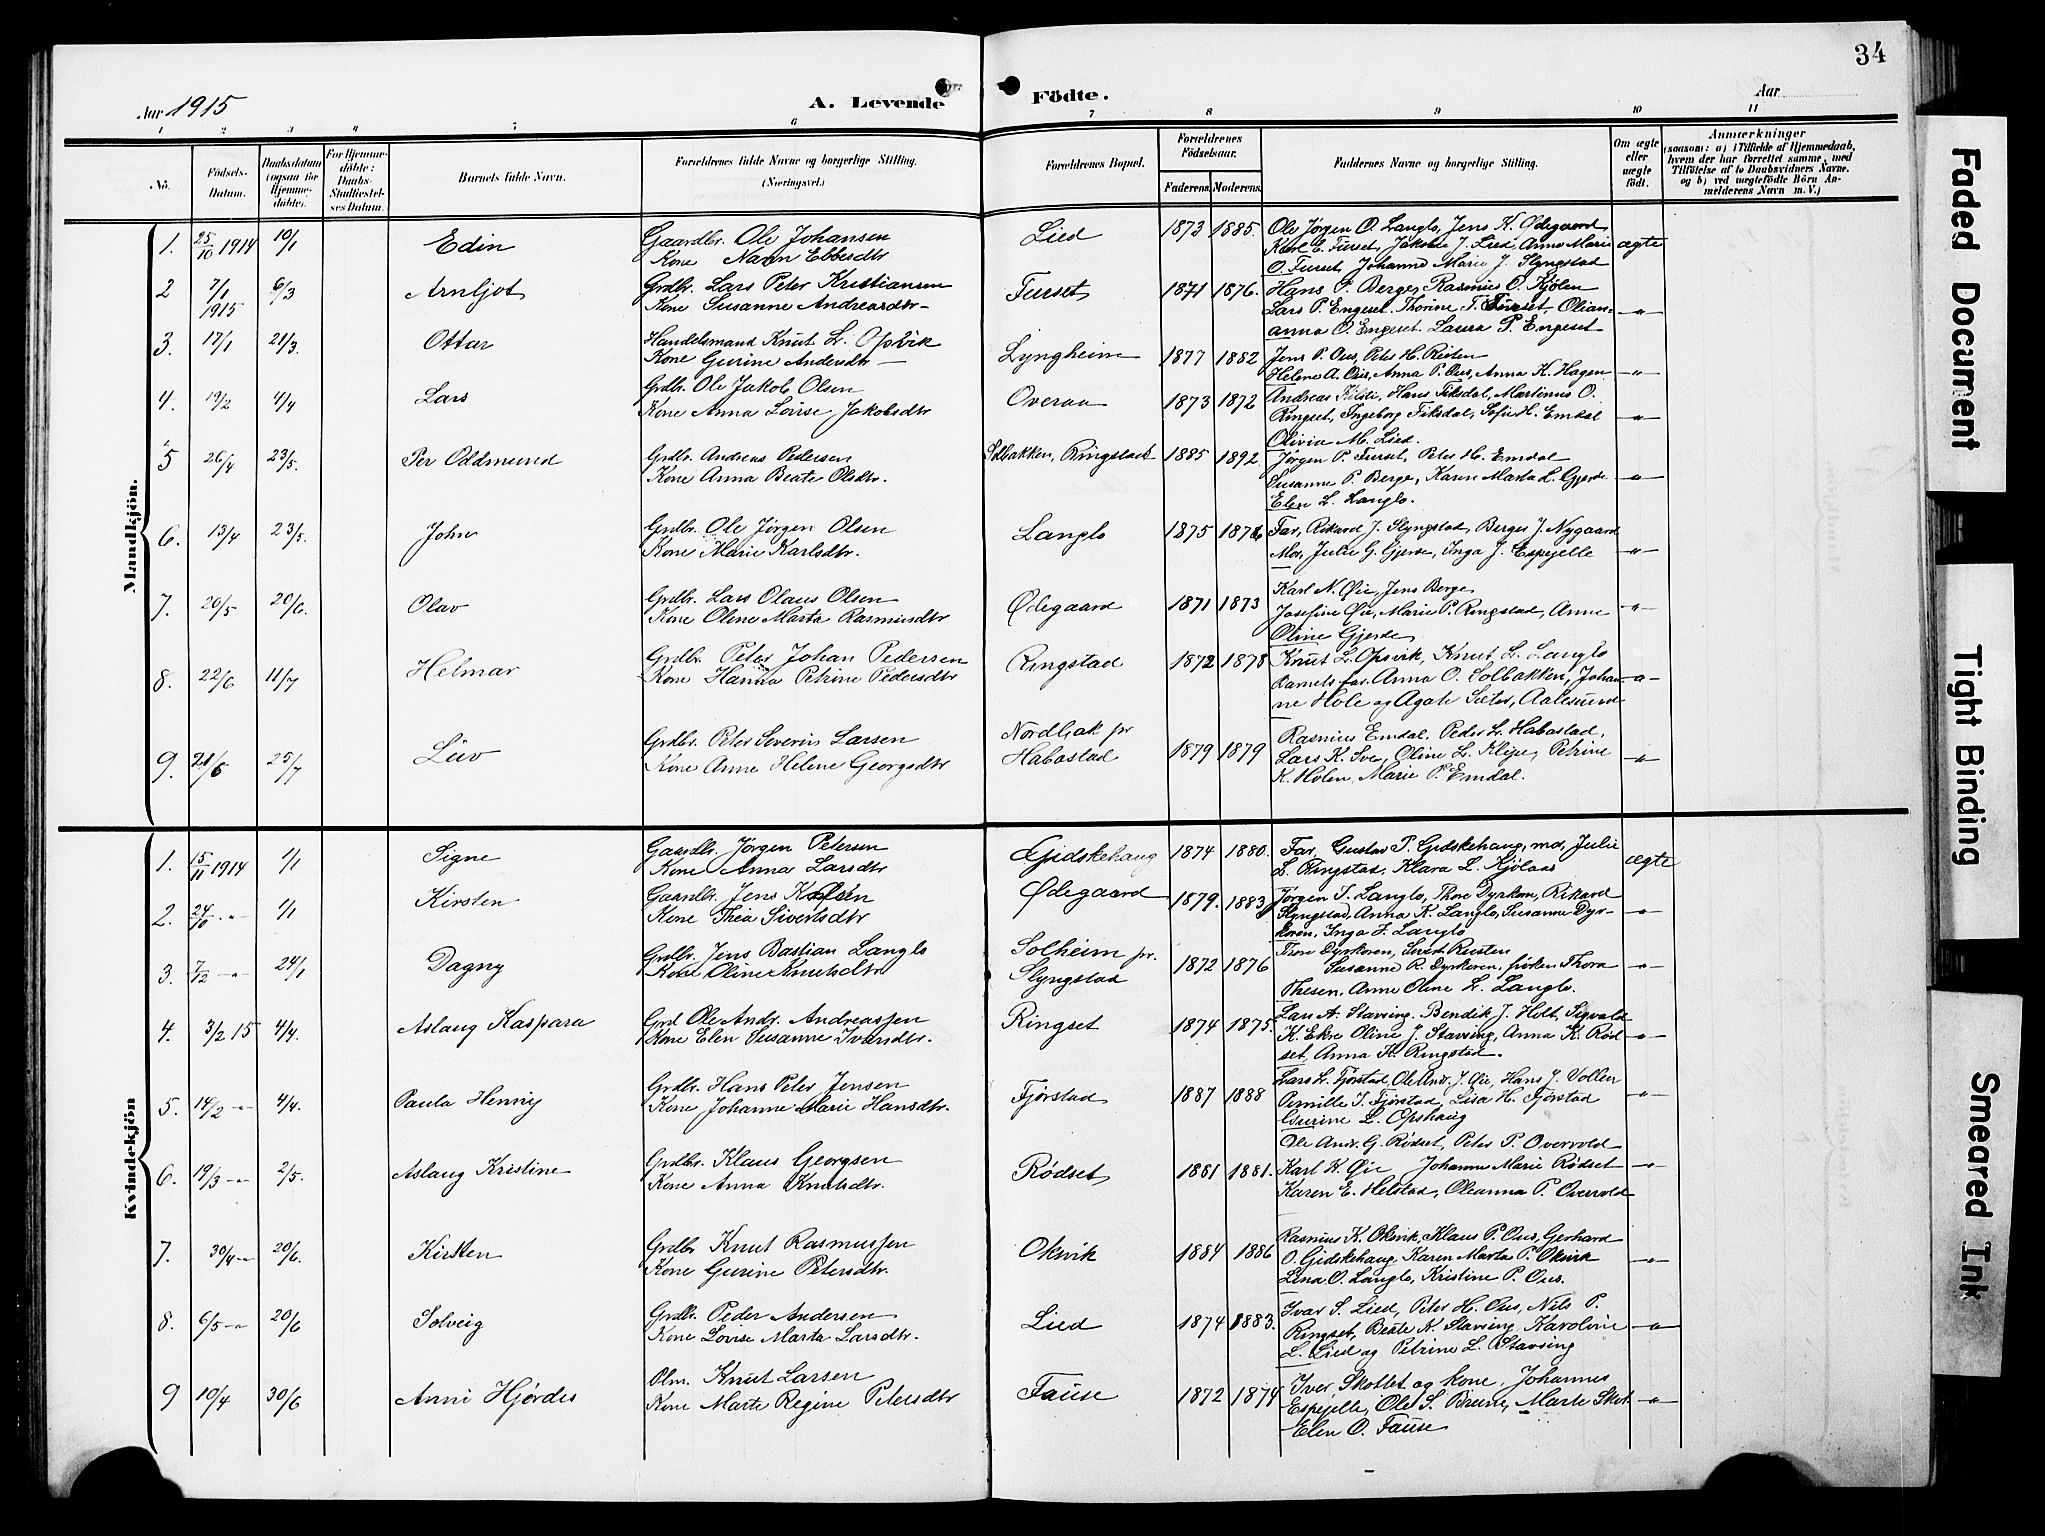 34
Aar 1915
A. Levende Födte.
Aar
1 2 3 4 5 6 7 8 9 10 11
No.
Födsels-Datum.
Daabsdatum (ogsaa for Hjemmedöbte).
For Hjemmedöbte: Daabs-Stadfæstelses Datum.
Barnets fulde Navn.
Forældrenes fulde Navne og borgerlige Stilling. (Næringsvei.)
Forældrenes Bopæl.
Forældrenes Födselsaar.
Faderens. Moderens.
Faddernes Navne og borgerlige Stilling.
Om ægte eller uægte födt.
Anmærkninger
(saasom: a) i Tilfælde af Hjemmedaab, hvem der har forrettet samme, med Tilföielse af to Daabsvidners Navne. og b) ved uægtefödte Börn Anmelderens Navn m. V.)
Mandkjön.
1. 25/10 1914 10/1 Edin Gaardbr. Ole Johansen Lied 1873 1885. Ole Jørgen O. Langlo, Jens K. Ødegaard
Kone Nann Ebbesdtr Karl E. Furset, Jakobie J. Lied, Anne Marie ægte
O. Furset, Johanne Marie J. Slyngstad
2 7/1 1915 6/3 Arnljot Grdbr. Lars Peter Kristiansen Furset 1871 1876. Hans P. Berge, Rasmus O. Kjölen
Kone Susanne Andreasdtr- Lars P. Engeset. Thorine T. Furset, Olian- -"-
anna O. Engeset. Laura P. Engeset
3. 17/1 21/3. Ottar Handelsmand Knut L. Opsvik Lyngheim 1877 1882 Jens P. Ous, Peter H. Risten
Kone Gurine Andersdtr - Helene A. Ous, Anna P. Ous, Anna K. Hagen -"-
4. 19/2 4/4 Lars Grdbr. Ole Jakob Olsen Overaa 1873 1872 Andreas Kolsti, Hans Fiksdal, Martinus O.
Kone Anna Lovise Jakobsdtr Ringset, Ingeborg Fiksdal, Sofie H. Emdal -"-
Olivia M. Lied.
5 26/4 23/5. Per Oddmund Grdbr. Andreas Pedersen Solbakken, Ringstad 1885 1892 Jørgen P. Furset, Peter H. Emdal
Kone Anna Beate Olsdtr. Susanne P. Berge, Karen Marta L. Gjerde -"-
Elen L. Langlo.
6. 13/4 23/5. John Grdbr. Ole Jørgen Olsen Langlo 1875 1876 Far, Rikard J. Slyngstad, Berger J. Nygaard
Kone Marie Karlsdtr. Mor, Julie G. Gjerde, Inga J. Espejelle -"-
7. 20/5 20/6. Olav Grdbr. Lars Olaus Olsen Ødegaard 1871 1873 Karl N. Øie, Jens Berge
Kone Oline Marta Rasmusdtr Josefine Øie, Marie P. Ringstad, Anne -"-
Oline Gjerde
8. 22/6 11/7 Helmar Grdbr. Peter Johan Pedersen Ringstad 1872 1878 Knut L. Opsvik, Knut L. Langlo
Kone Hanna Petrine Pedersdtr Barnets far. Anna O. Solbakken, Johan- -"-
ne Hole og Agate Sæter, Aalesund
9. 21/6 25/7 Liiv Grdbr. Peter Severin Larsen Nordbak pr Habostad 1879 1879 Rasmus Emdal, Peder L. Habostad,
Kone Anne Helene Georgsdtr Lars K. Sve, Oline L. Klipe, Petrine -"-
K. Holen, Marie P. Emdal.
Kvindekjön
1. 15/11 1914 1/1 Signe Gaardbr. Jørgen Petersen Gidskehaug 1874 1880. Far, Gustav P. Gidskehaug, md, Julie
Kone Anna Larsdtr L. Ringstad, Klara L. Kjölaas ægte
2. 24/10 -"- 1/1 Kirsten Gaardbr. Jens Karlsen Ødegaard 1879. 1883 Jørgen T. Langlo, Thore Dyrkorn, Rikard
Kone Thea Sivertsdtr Slyngstad, Anna K. Langlo, Susanne Dyr- -"-
koren. Inga F. Langlo
3. 7/12 -"- 24/1 Dagny Grdbr. Jens Bastian Langlo Solheim pr. Slyngstad 1872 1876 Thore Dyrkoren, Sivert Riksten
Kone Oline Knutsdtr Susanne R. Dyrkoren, frøken Thora -"-
Thesen, Anne Oline L. Langlo.
4. 3/2 15 4/4. Aslaug Kaspara Grd Ole Andr. Andreassen Ringset 1874 1875. Lars A. Stavseng. Bendik J. Holt, Sigvald
Kone Elen Susanne Ivarsdtr. K. Ekre Oline J. Stavseng, Anna K. Rød- -"-
set, Anna H. Ringstad.
5. 14/2 -"- 4/4. Paula Henny Grdbr. Hans Peter Jensen Fjørstad 1887 1888 Lars L. Fjørstad, Ole Andr. J. Øie, Hans J. Vollen
Kone Johanne Marie Hansdtr. Pernille J. Fjørstad, Lisa H. Fjørstad -"-
Gurine L. Opshaug
6. 19/3 -"- 2/5. Aslaug Kristine Grdbr. Klaus Georgsen Rødset 1881 1881. Ole Andr. G. Rødset, Peter P. Overvold
Kone Anna Knutsdtr. Karl K. Øie Johanne Marie Rødset -"-
Karen E. Helstad, Oleanna P. Overvold
7. 30/4 -"- 20/6. Kirsten Grdbr Knut Rasmussen Okvik 1884 1886 Rasmus K. Okvik, Klaus P. Ous, Gerhard
Kone Gurine Petersdtr. O. Gidskehaug Karen Marta P. Okvik -"-
Lina O. Langlo, Kristine P. Ous.
8. 6/5 -"- 20/6 Solveig Grdbr. Peder Andersen Lied 1874 1883. Ivar S. Lied, Peter H. Ous, Nils P.
Kone Lovise Marta Larsdtr. Ringset, Beate K. Stavseng, Karoline -"-
L. Lied og Petrine L. Stavseng
9 10/4 30/6 Anni Hjørdis Olm. Knut Larsen Fause 1872 1874 Iver Skottet og kone, Johannes
Kone Marte Regine Petersdtr Espejelle, Ole S. Brune, Marte Skot. -"-
Elen O. Fause
Faded Document
Tight Binding
Smeared Ink